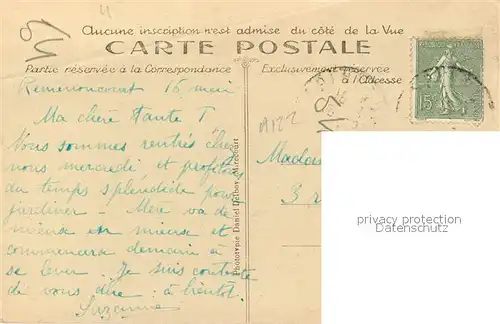 Aucune inscription n'est admise du côté de la Vue
CARTE POSTALE
Partie réservée à la Correspondance
Exclusivement réservée
à l'Adresse
16 mai
Ma chère tante
Nous sommes rentrés chez
nous mercredi et profitons
du temps splendide pour
jardiner - Mère va de
mieux en mieux et
commencera demain à
se lever. Je suis contente
de vous dire : à bientôt.
Suzanne
Phototypie Daniel Delboy, Mirecourt
Madame
3 r
15
privacy protection
Datenschutz